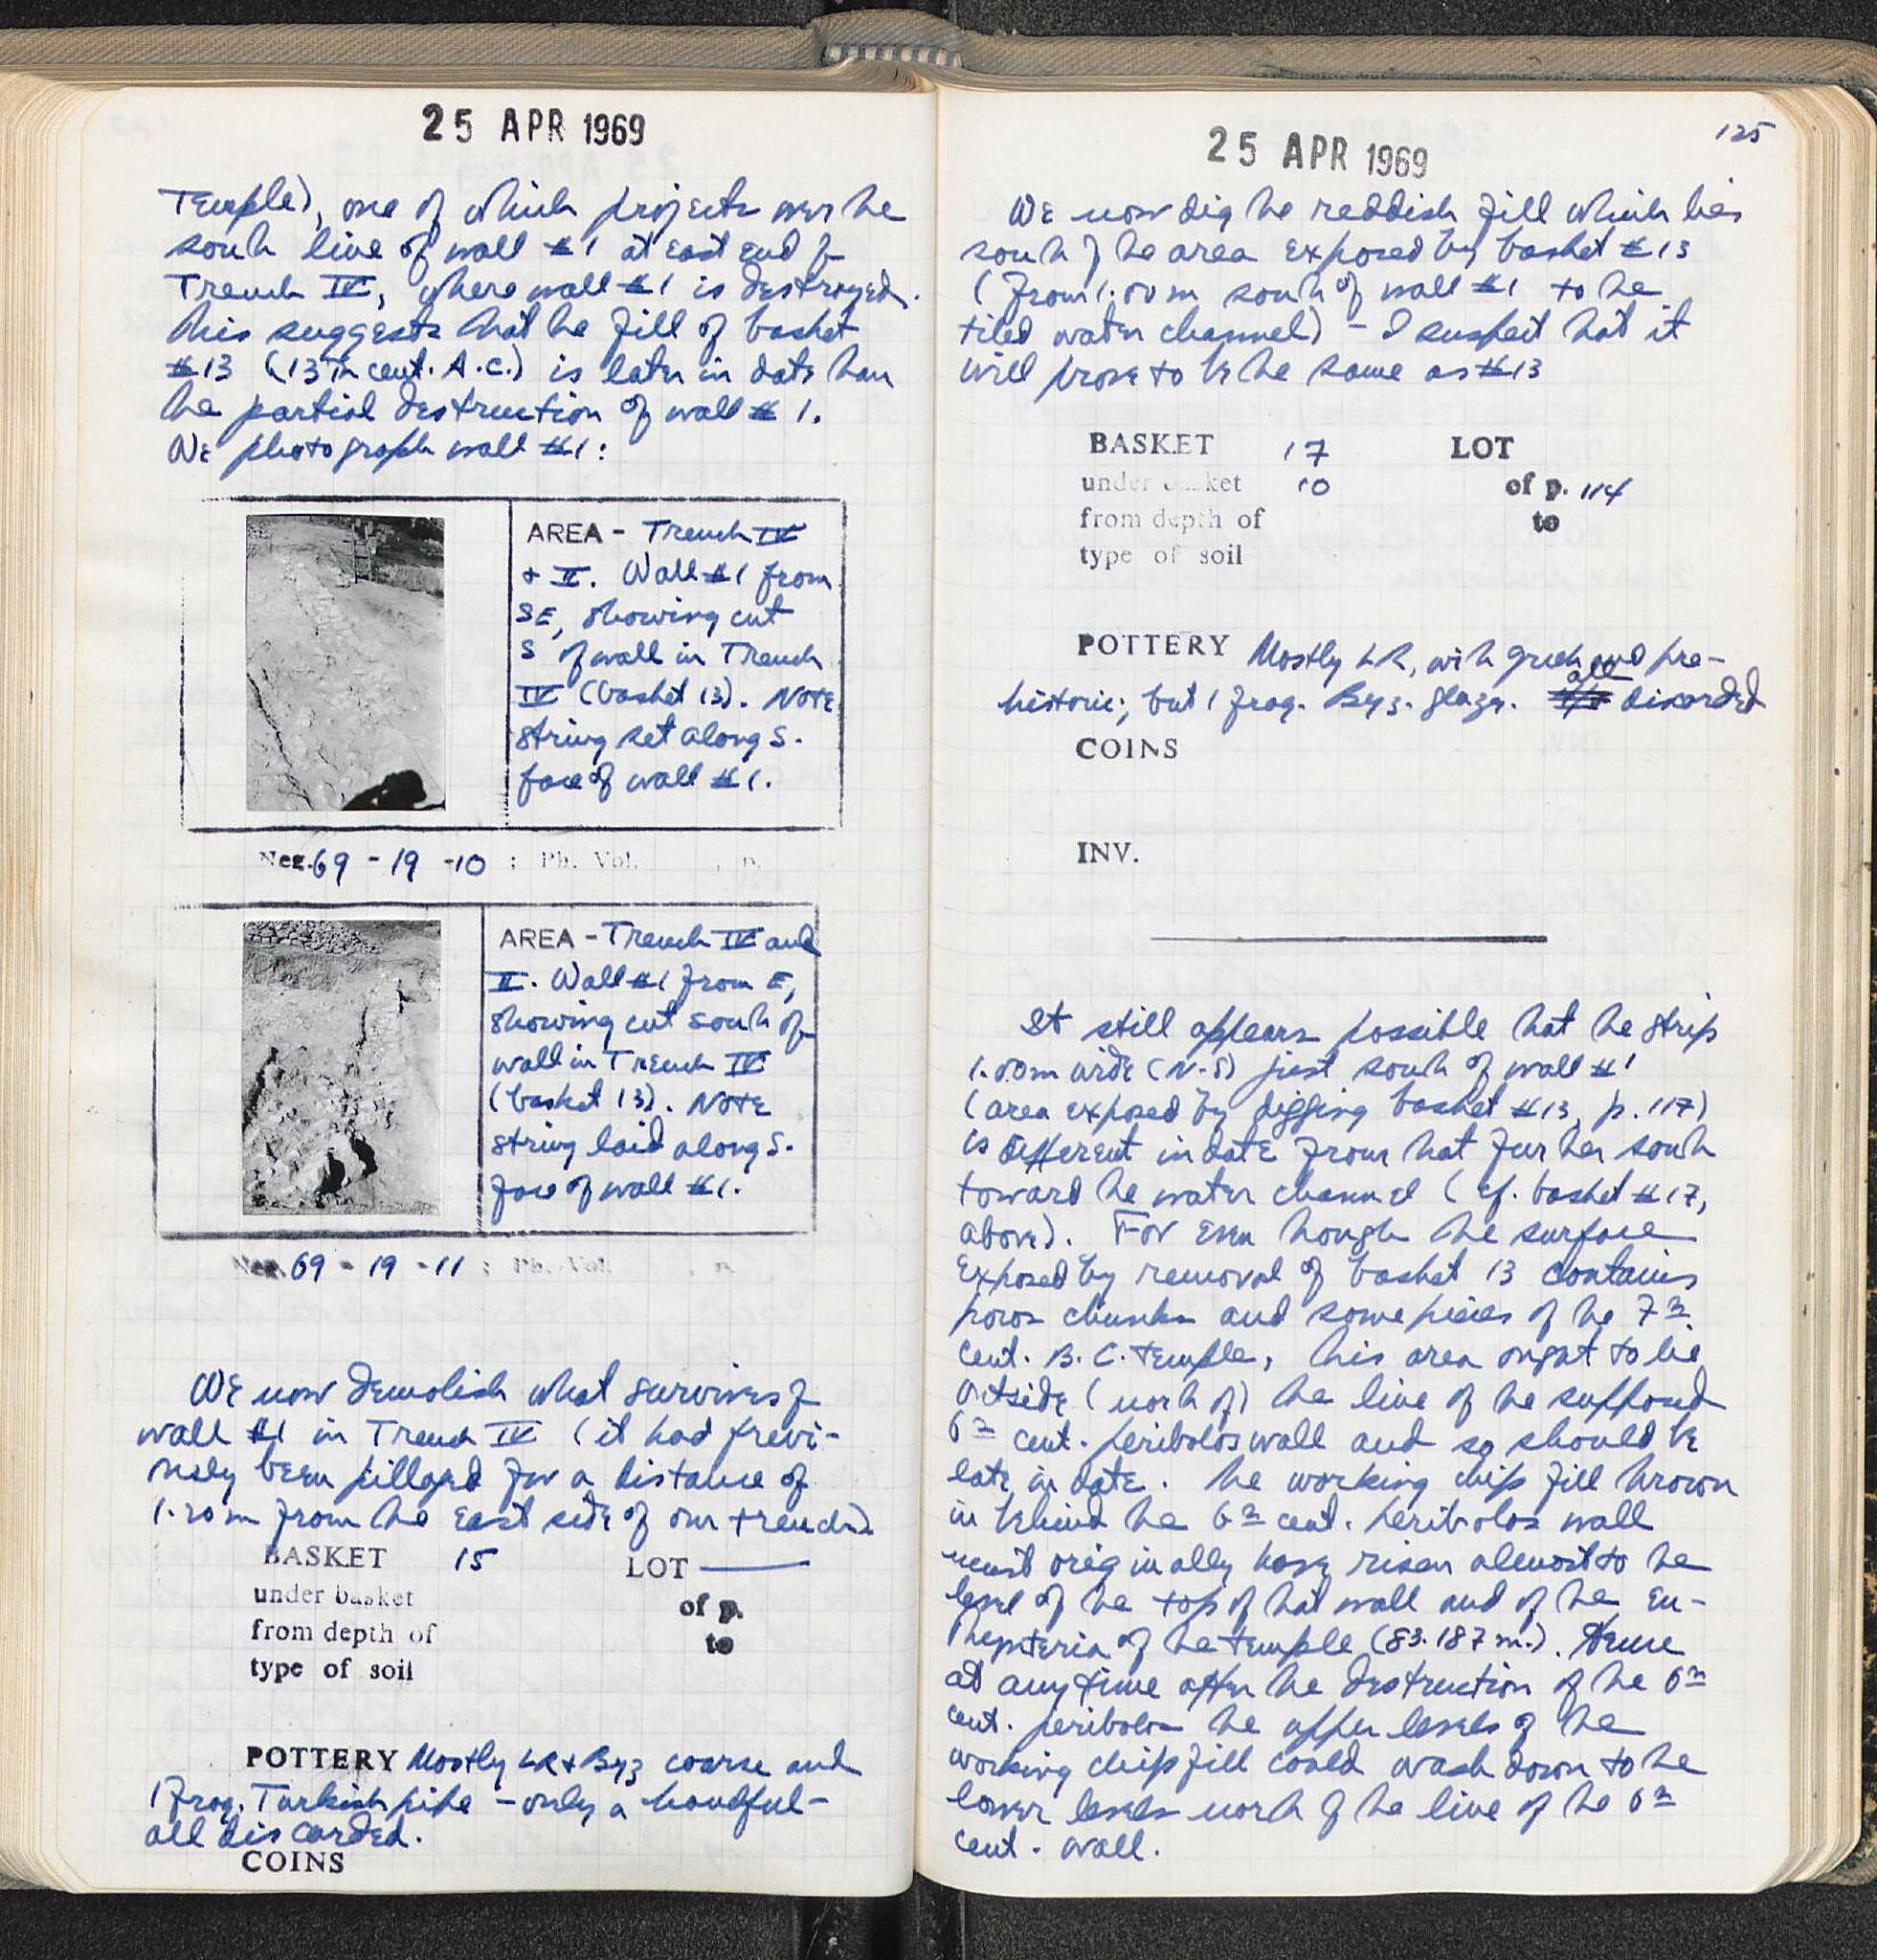 25 APR 1969
Temple), one of which projects over the
south line of wall #1 at east end of
Trench IV, where wall #1 is destroyed.
This suggests that the fill of basket
#13 (13th cent. A.C.) is later in date than
the partial destruction of wall #1.
We photograph wall #1:
AREA - Trench IV
+ II. Wall #1 from
SE, showing cut
S of wall in Trench
IV (basket 13). Note
string set along S.
face of wall #1.
Neg. 69 - 19 - 10 ; Ph. Vol. , p.
AREA - Trench IV and
II. Wall #1 from E,
showing cut south of
wall in Trench IV
(basket 13). Note
string laid along S.
face of wall #1.
Neg. 69 - 19 - 11 ; Ph. Vol. , p.
We now demolish what survives of
wall #1 in Trench IV (it had previ-
ously been pillaged for a distance of
1.20 m from the east side of our trench).
BASKET 15 LOT ——
under basket of p.
from depth of to
type of soil
POTTERY Mostly LR + Byz coarse and
1 frag. Turkish pipe - only a handful -
all discarded.
COINS
125
25 APR 1969
We now dig the reddish fill which lies
south of the area exposed by basket #13
(from 1.00 m south of wall #1 to the
tiled water channel) - I suspect that it
will prove to be the same as #13
BASKET 17 LOT
under basket 10 of p. 114
from depth of to
type of soil
POTTERY Mostly LR, with Greek and pre-
historic; but 1 frag. Byz. glaze. all discarded
COINS
INV.
It still appears possible that the strip
1.00m wide (N-S) just south of wall #1
(area exposed by digging basket #13, p. 117)
is different in date from that further south
toward the water channel (cf. basket #17,
above). For even though the surface
exposed by removal of basket 13 contains
poros chunks and some pieces of the 7th
cent. B.C. temple, this area ought to be
outside (north of) the line of the supposed
6th cent. peribolos wall and so should be
late in date. The working chip fill thrown
in behind the 6th cent. peribolos wall
must originally have risen almost to the
level of the top of that wall and of the eu-
thynteria of the temple (83.187 m.). Hence
at any time after the destruction of the 6th
cent. peribolos the upper levels of the
working chip fill could wash down to the
lower levels north of the line of the 6th
cent. wall.